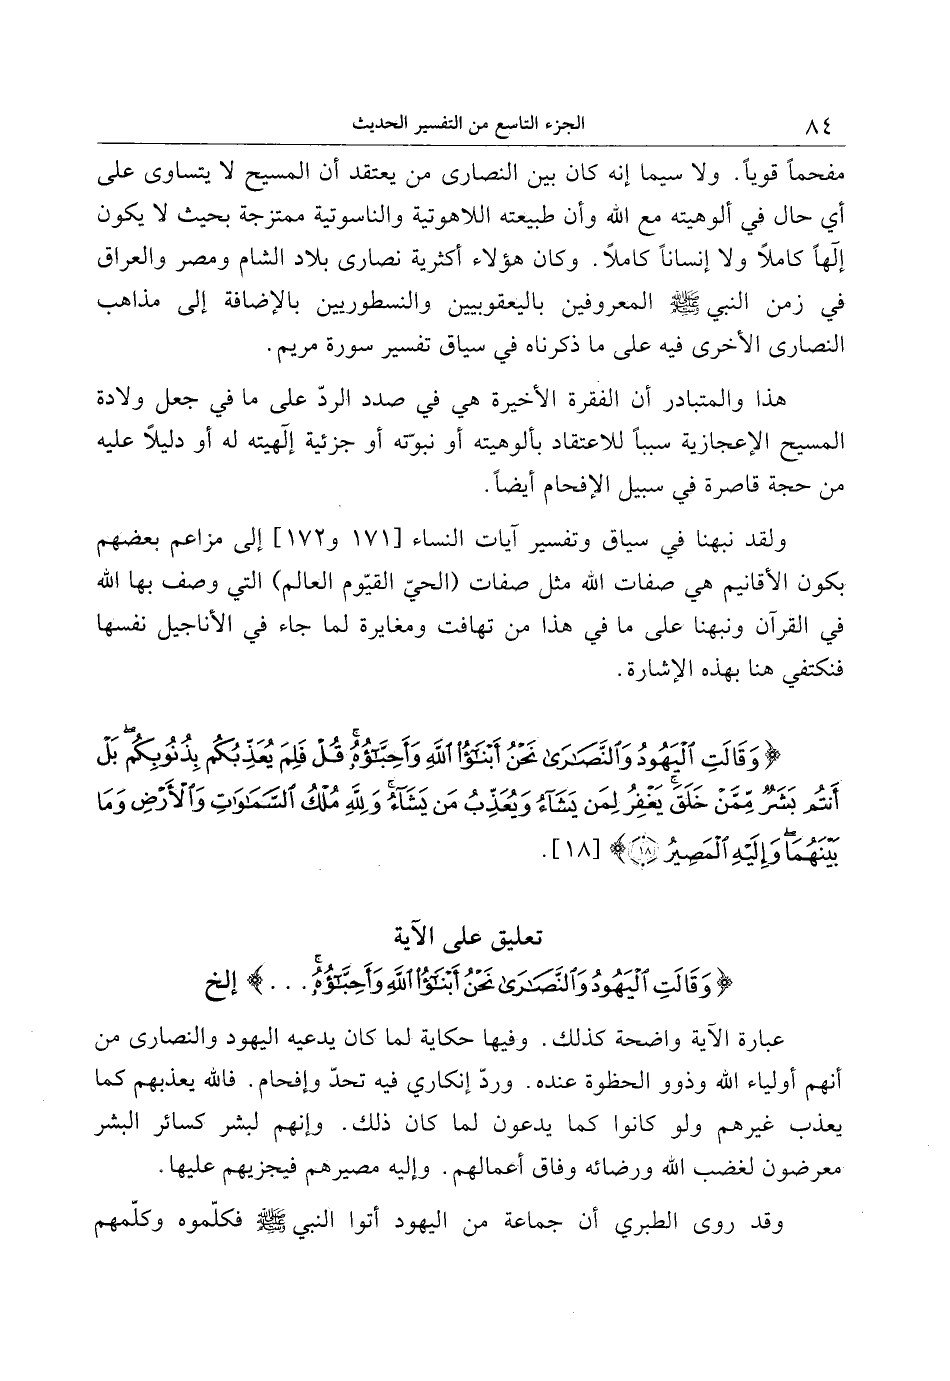 ٨٤ الجزء التاسع من التفسير الحديث
مفحماً قوياً. ولا سيما إنه كان بين النصارى من يعتقد أن المسيح لا يتساوى على
أي حال في ألوهيته مع الله وأن طبيعته اللاهوتية والناسوتية ممتزجة بحيث لا يكون
إلٓهاً كاملاً ولا إنساناً كاملاً. وكان هؤلاء أكثرية نصارى بلاد الشام ومصر والعراق
في زمن النبي ﷺ المعروفين باليعقوبيين والنسطوريين بالإضافة إلى مذاهب
النصارى الأخرى فيه على ما ذكرناه في سياق تفسير سورة مريم.
هذا والمتبادر أن الفقرة الأخيرة هي في صدد الردّ على ما في جعل ولادة
المسيح الإعجازية سبباً للاعتقاد بألوهيته أو نبوّته أو جزئية إلٓهيته له أو دليلاً عليه
من حجة قاصرة في سبيل الإفحام أيضاً.
ولقد نبهنا في سياق وتفسير آيات النساء [١٧١ و١٧٢] إلى مزاعم بعضهم
بكون الأقانيم هي صفات الله مثل صفات (الحيّ القيّوم العالم) التي وصف بها الله
في القرآن ونبهنا على ما في هذا من تهافت ومغايرة لما جاء في الأناجيل نفسها
فنكتفي هنا بهذه الإشارة.
﴿وَقَالَتِ ٱلۡيَهُودُ وَٱلنَّصَٰرَىٰ نَحۡنُ أَبۡنَٰٓؤُاْ ٱللَّهِ وَأَحِبَّٰٓؤُهُۥۚ قُلۡ فَلِمَ يُعَذِّبُكُم بِذُنُوبِكُمۖ بَلۡ
أَنتُم بَشَرٞ مِّمَّنۡ خَلَقَۚ يَغۡفِرُ لِمَن يَشَآءُ وَيُعَذِّبُ مَن يَشَآءُۚ وَلِلَّهِ مُلۡكُ ٱلسَّمَٰوَٰتِ وَٱلۡأَرۡضِ وَمَا
بَيۡنَهُمَاۖ وَإِلَيۡهِ ٱلۡمَصِيرُ ١٨﴾ [١٨].
تعليق على الآية
﴿وَقَالَتِ ٱلۡيَهُودُ وَٱلنَّصَٰرَىٰ نَحۡنُ أَبۡنَٰٓؤُاْ ٱللَّهِ وَأَحِبَّٰٓؤُهُۥۚ . . .﴾ إلخ
عبارة الآية واضحة كذلك. وفيها حكاية لما كان يدعيه اليهود والنصارى من
أنهم أولياء الله وذوو الحظوة عنده. وردّ إنكاري فيه تحدّ وإفحام. فالله يعذبهم كما
يعذب غيرهم ولو كانوا كما يدعون لما كان ذلك. وإنهم لبشر كسائر البشر
معرضون لغضب الله ورضائه وفاق أعمالهم. وإليه مصيرهم فيجزيهم عليها.
وقد روى الطبري أن جماعة من اليهود أتوا النبي ﷺ فكلّموه وكلّمهم